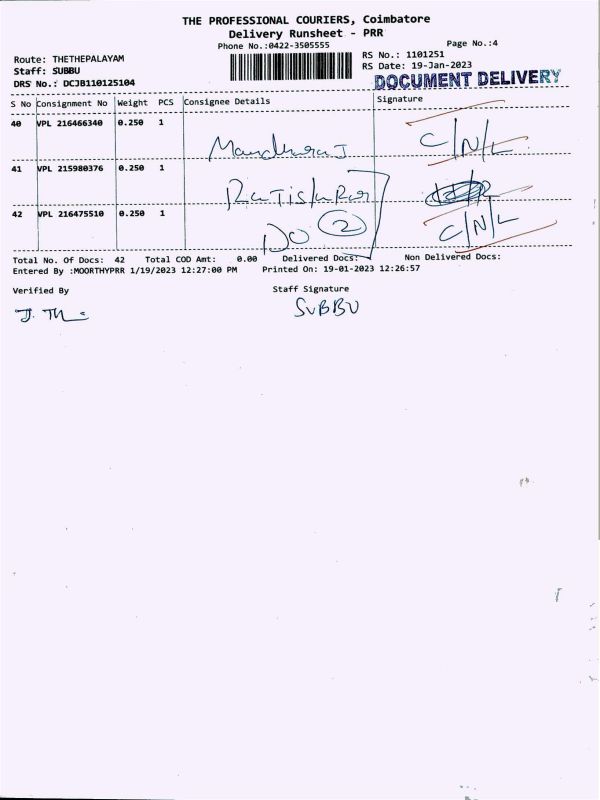 THE PROFESSIONAL COURIERS, Coimbatore
Delivery Runsheet - PRR
Phone No.:0422-3505555
Page No.:4
Route: THETHEPALAYAM
RS No.: 1101251
Staff: SUBBU
RS Date: 19-Jan-2023
DRS No.: DCJB110125104
DOCUMENT DELIVERY
S No Consignment No Weight PCS Consignee Details Signature
40 VPL 216466340 0.250 1 C/N/L
41 VPL 215980376 0.250 1
42 VPL 216475510 0.250 1 DO 2 C/N/L
Total No. Of Docs: 42 Total COD Amt: 0.00 Delivered Docs: Non Delivered Docs:
Entered By :MOORTHYPRR 1/19/2023 12:27:00 PM Printed On: 19-01-2023 12:26:57
Verified By Staff Signature
SUBBU